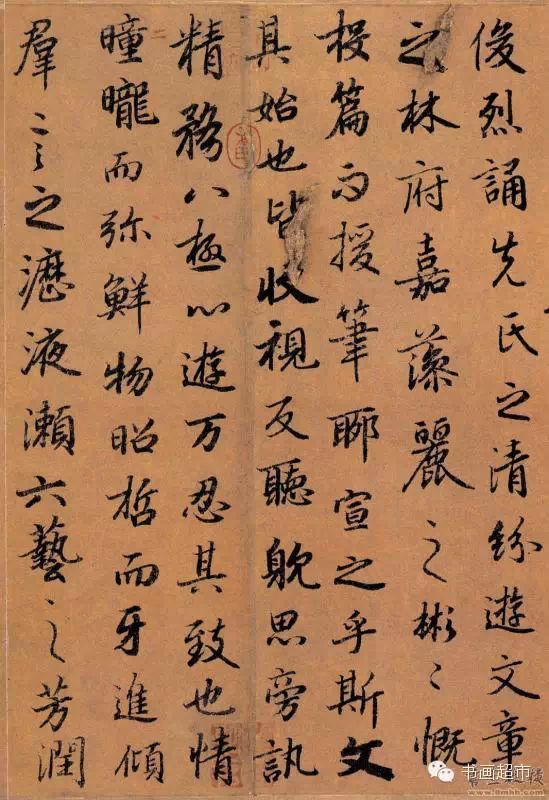 俊烈誦先民之清紛遊文章
之林府嘉藻麗之彬〻慨
投篇而援筆聊宣之乎斯文
其始也皆收視反聽躭思旁訊
精務八極心遊万忍其致也情
曈曨而弥鮮物昭晢而互進傾
羣言之瀝液漱六藝之芳潤
书画超市